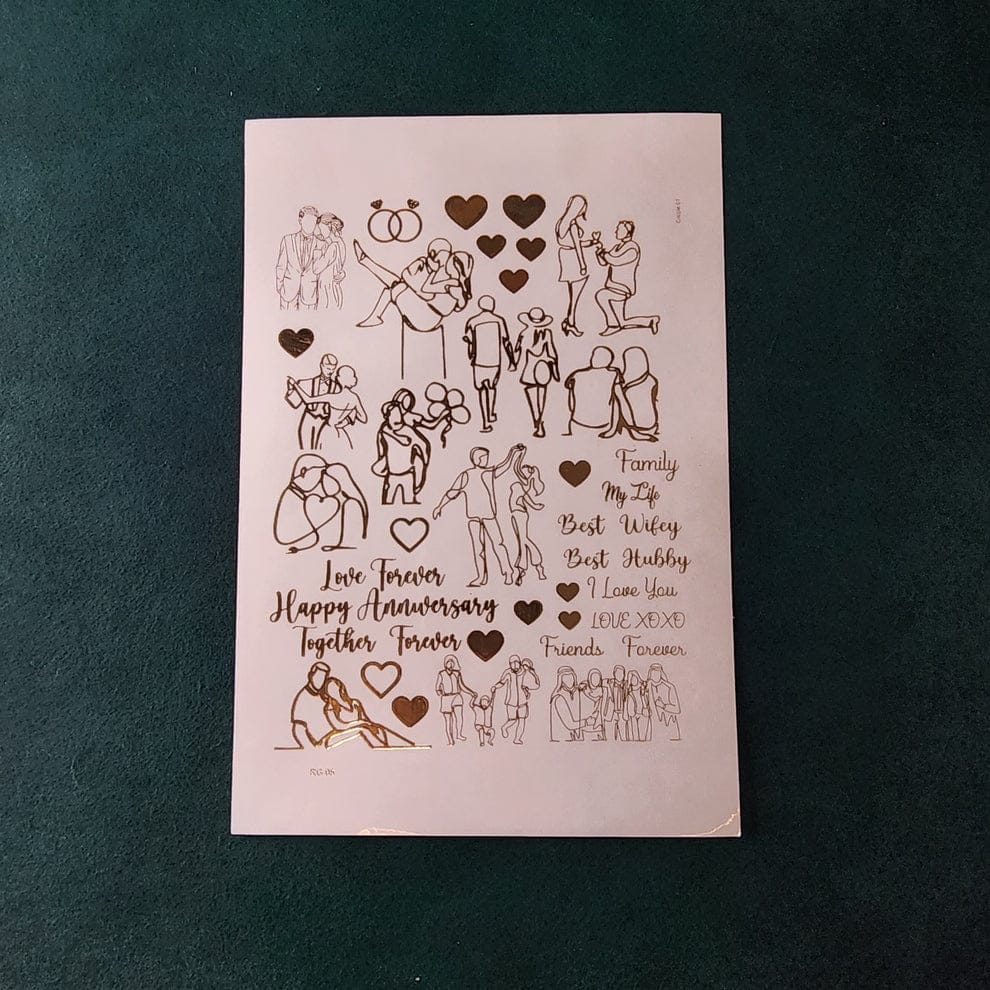 Family
My Life
Best Wifey
Best Hubby
Love Forever
I Love You
Happy Anniversary
LOVE XOXO
Together Forever
Friends Forever
RG 06